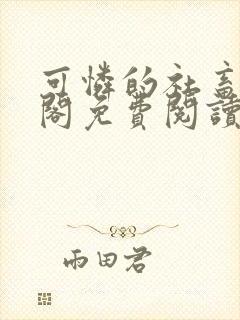 可憐的社畜
閣免費閱讀
雨田君